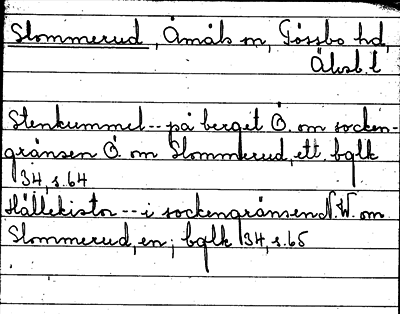 Slommerud, Åmåls sn, Tössbo hd,
Älvsb. l
Stenkummel -- på berget Ö. om socken-
gränsen Ö. om Slommerud, ett. bglk
34, s. 64
Hällekistor -- i sockengränsen N.W. om
Slommerud, en; bglk 34, s. 65